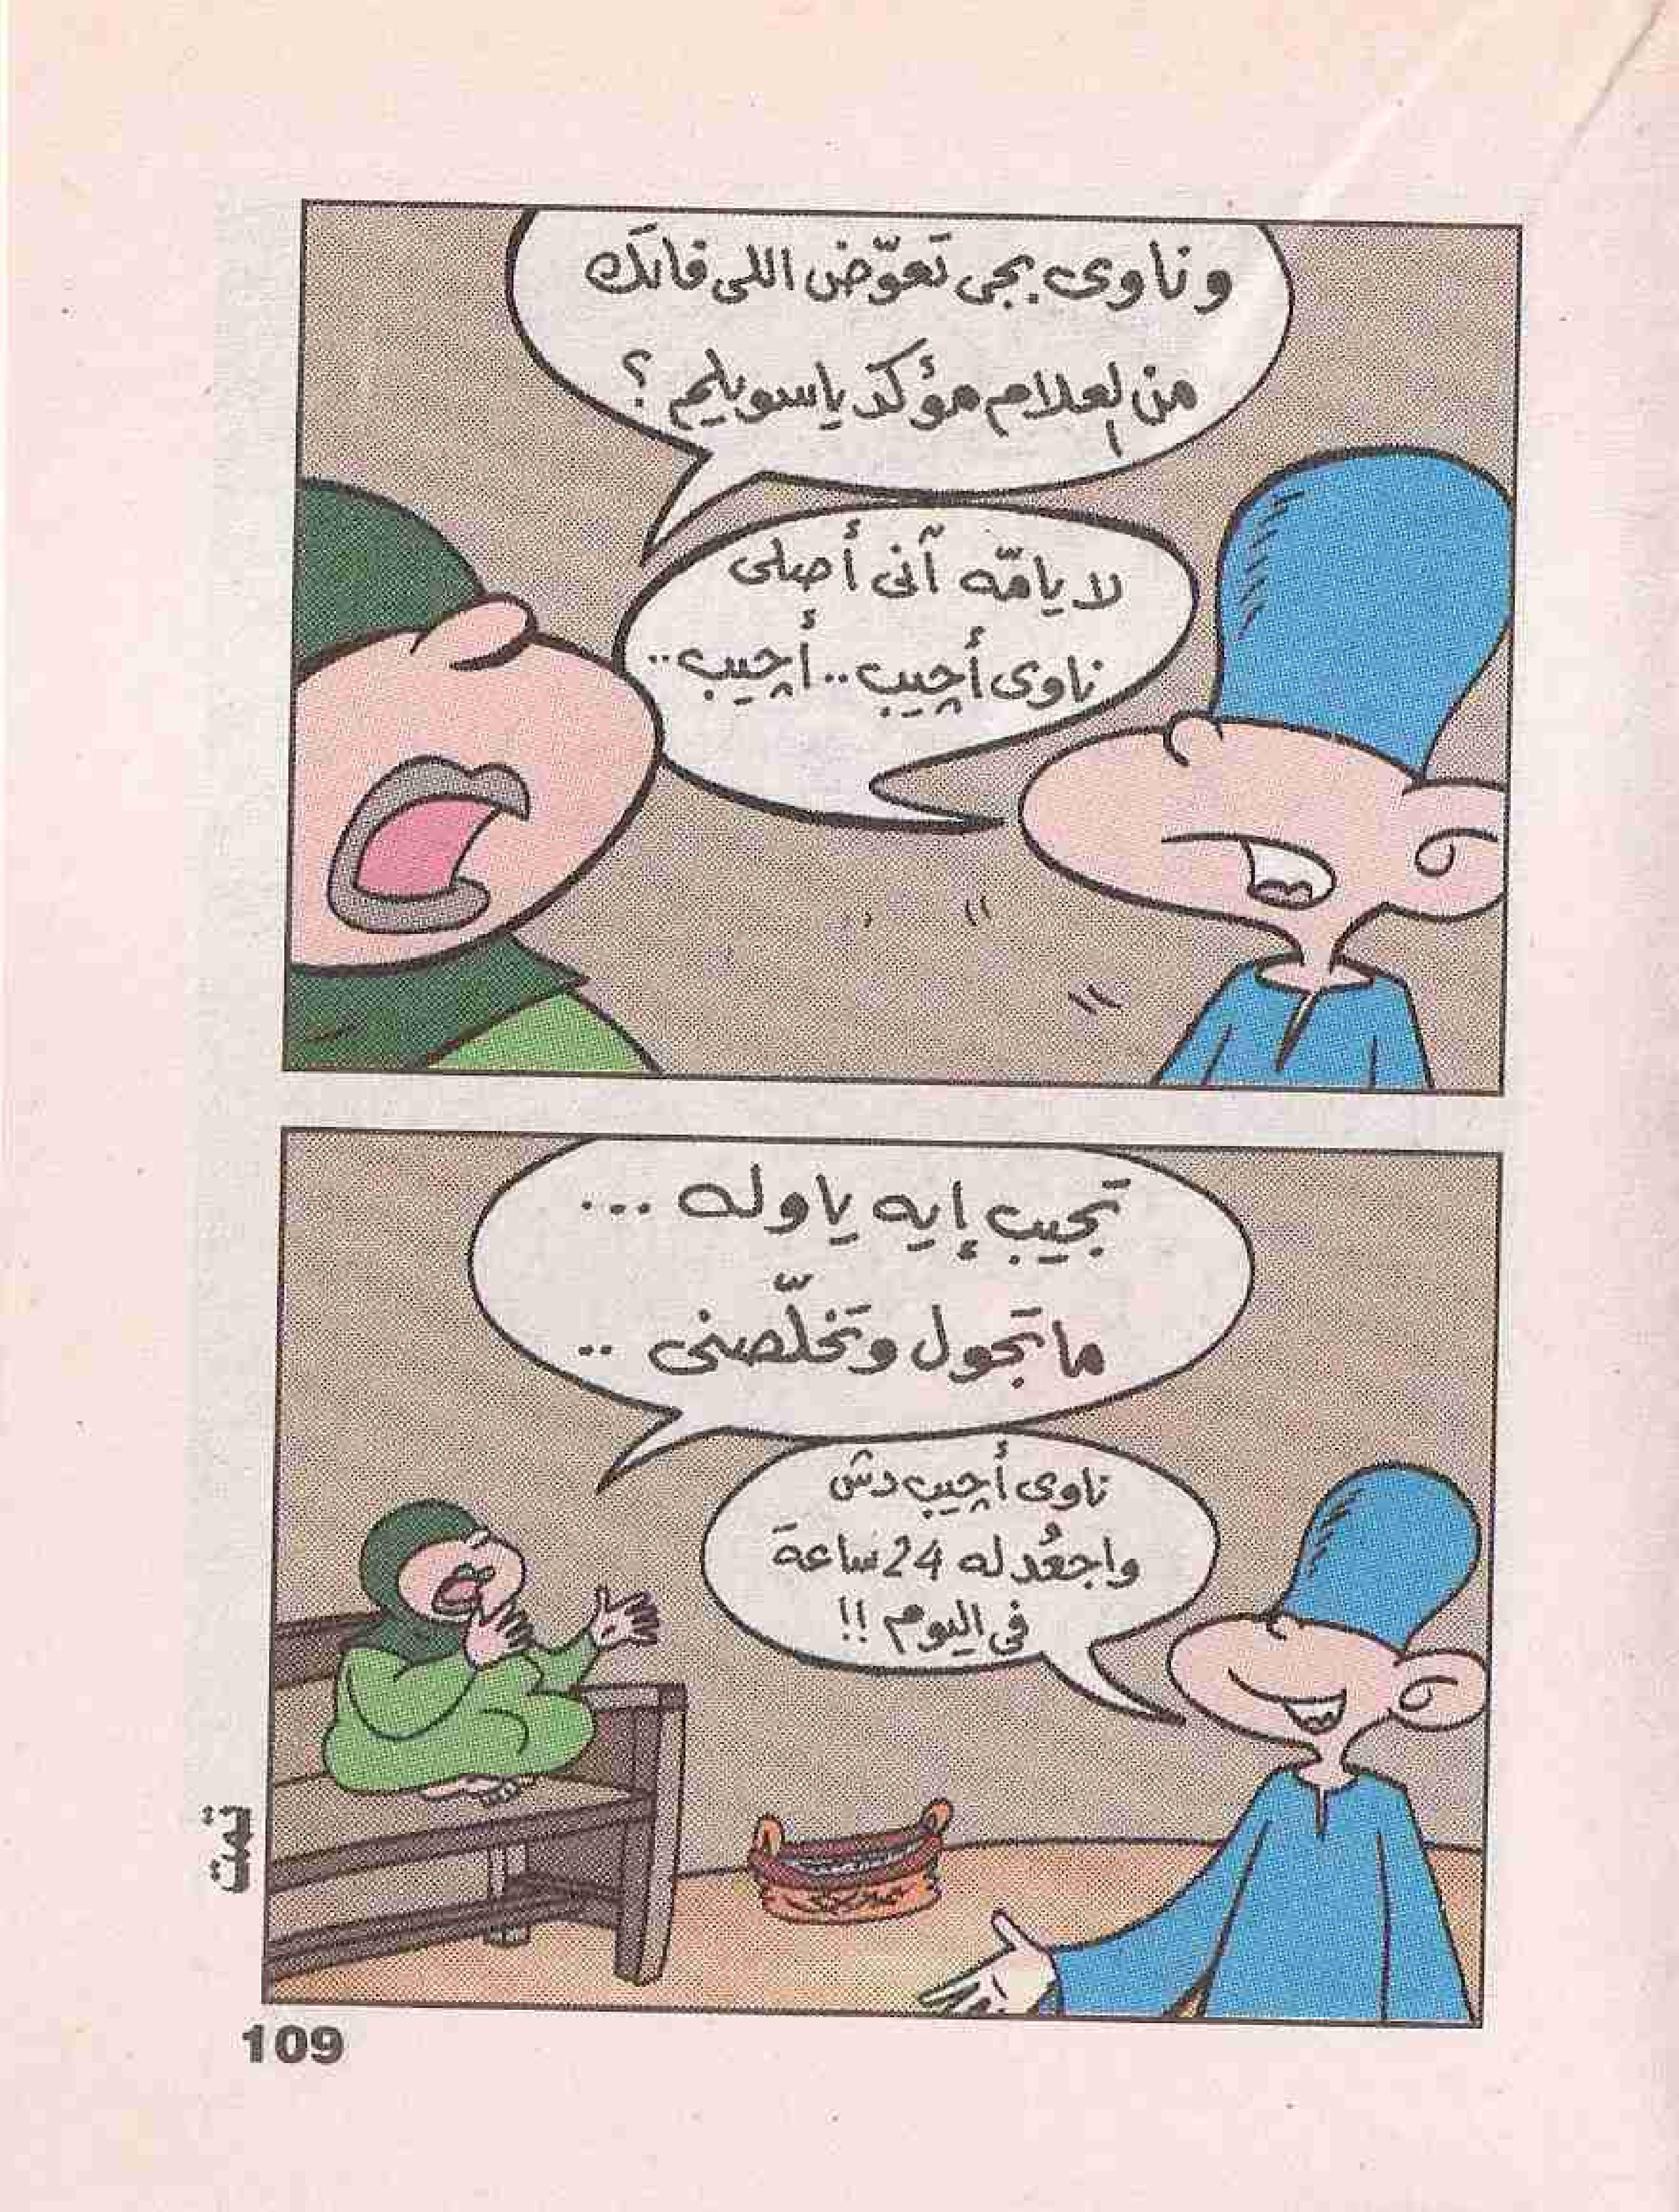 وناوى بجى تَعوّض اللى فاتَك
من العلام مؤكد ياسويلم ؟
لا يامّه آنى أصلى
ناوى أچيب .. أچيب ..
تجيب إيه ياوله ...
ما تجول وتخلّصنى ..
ناوى أچيب دش
واجعُد له 24 ساعة
فى اليوم !!
تمت
109